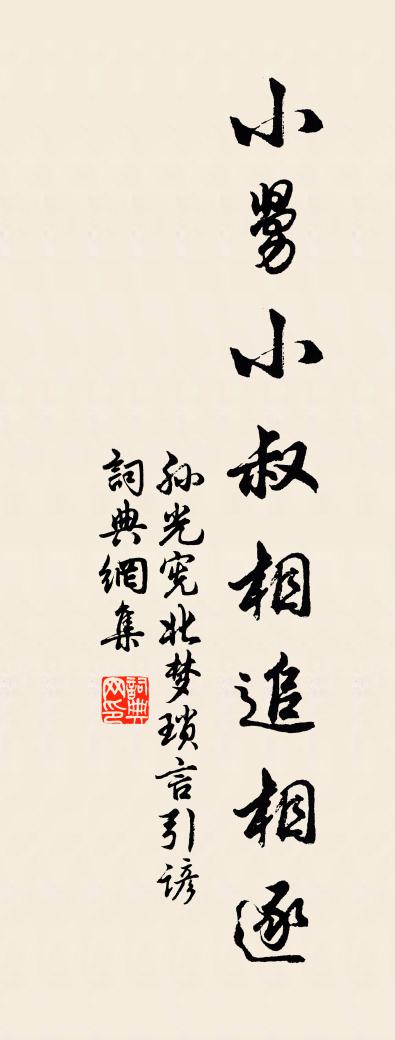 小舅小叔相追相逐
孙光宪北梦琐言引谚
詞典網集
詞典网印